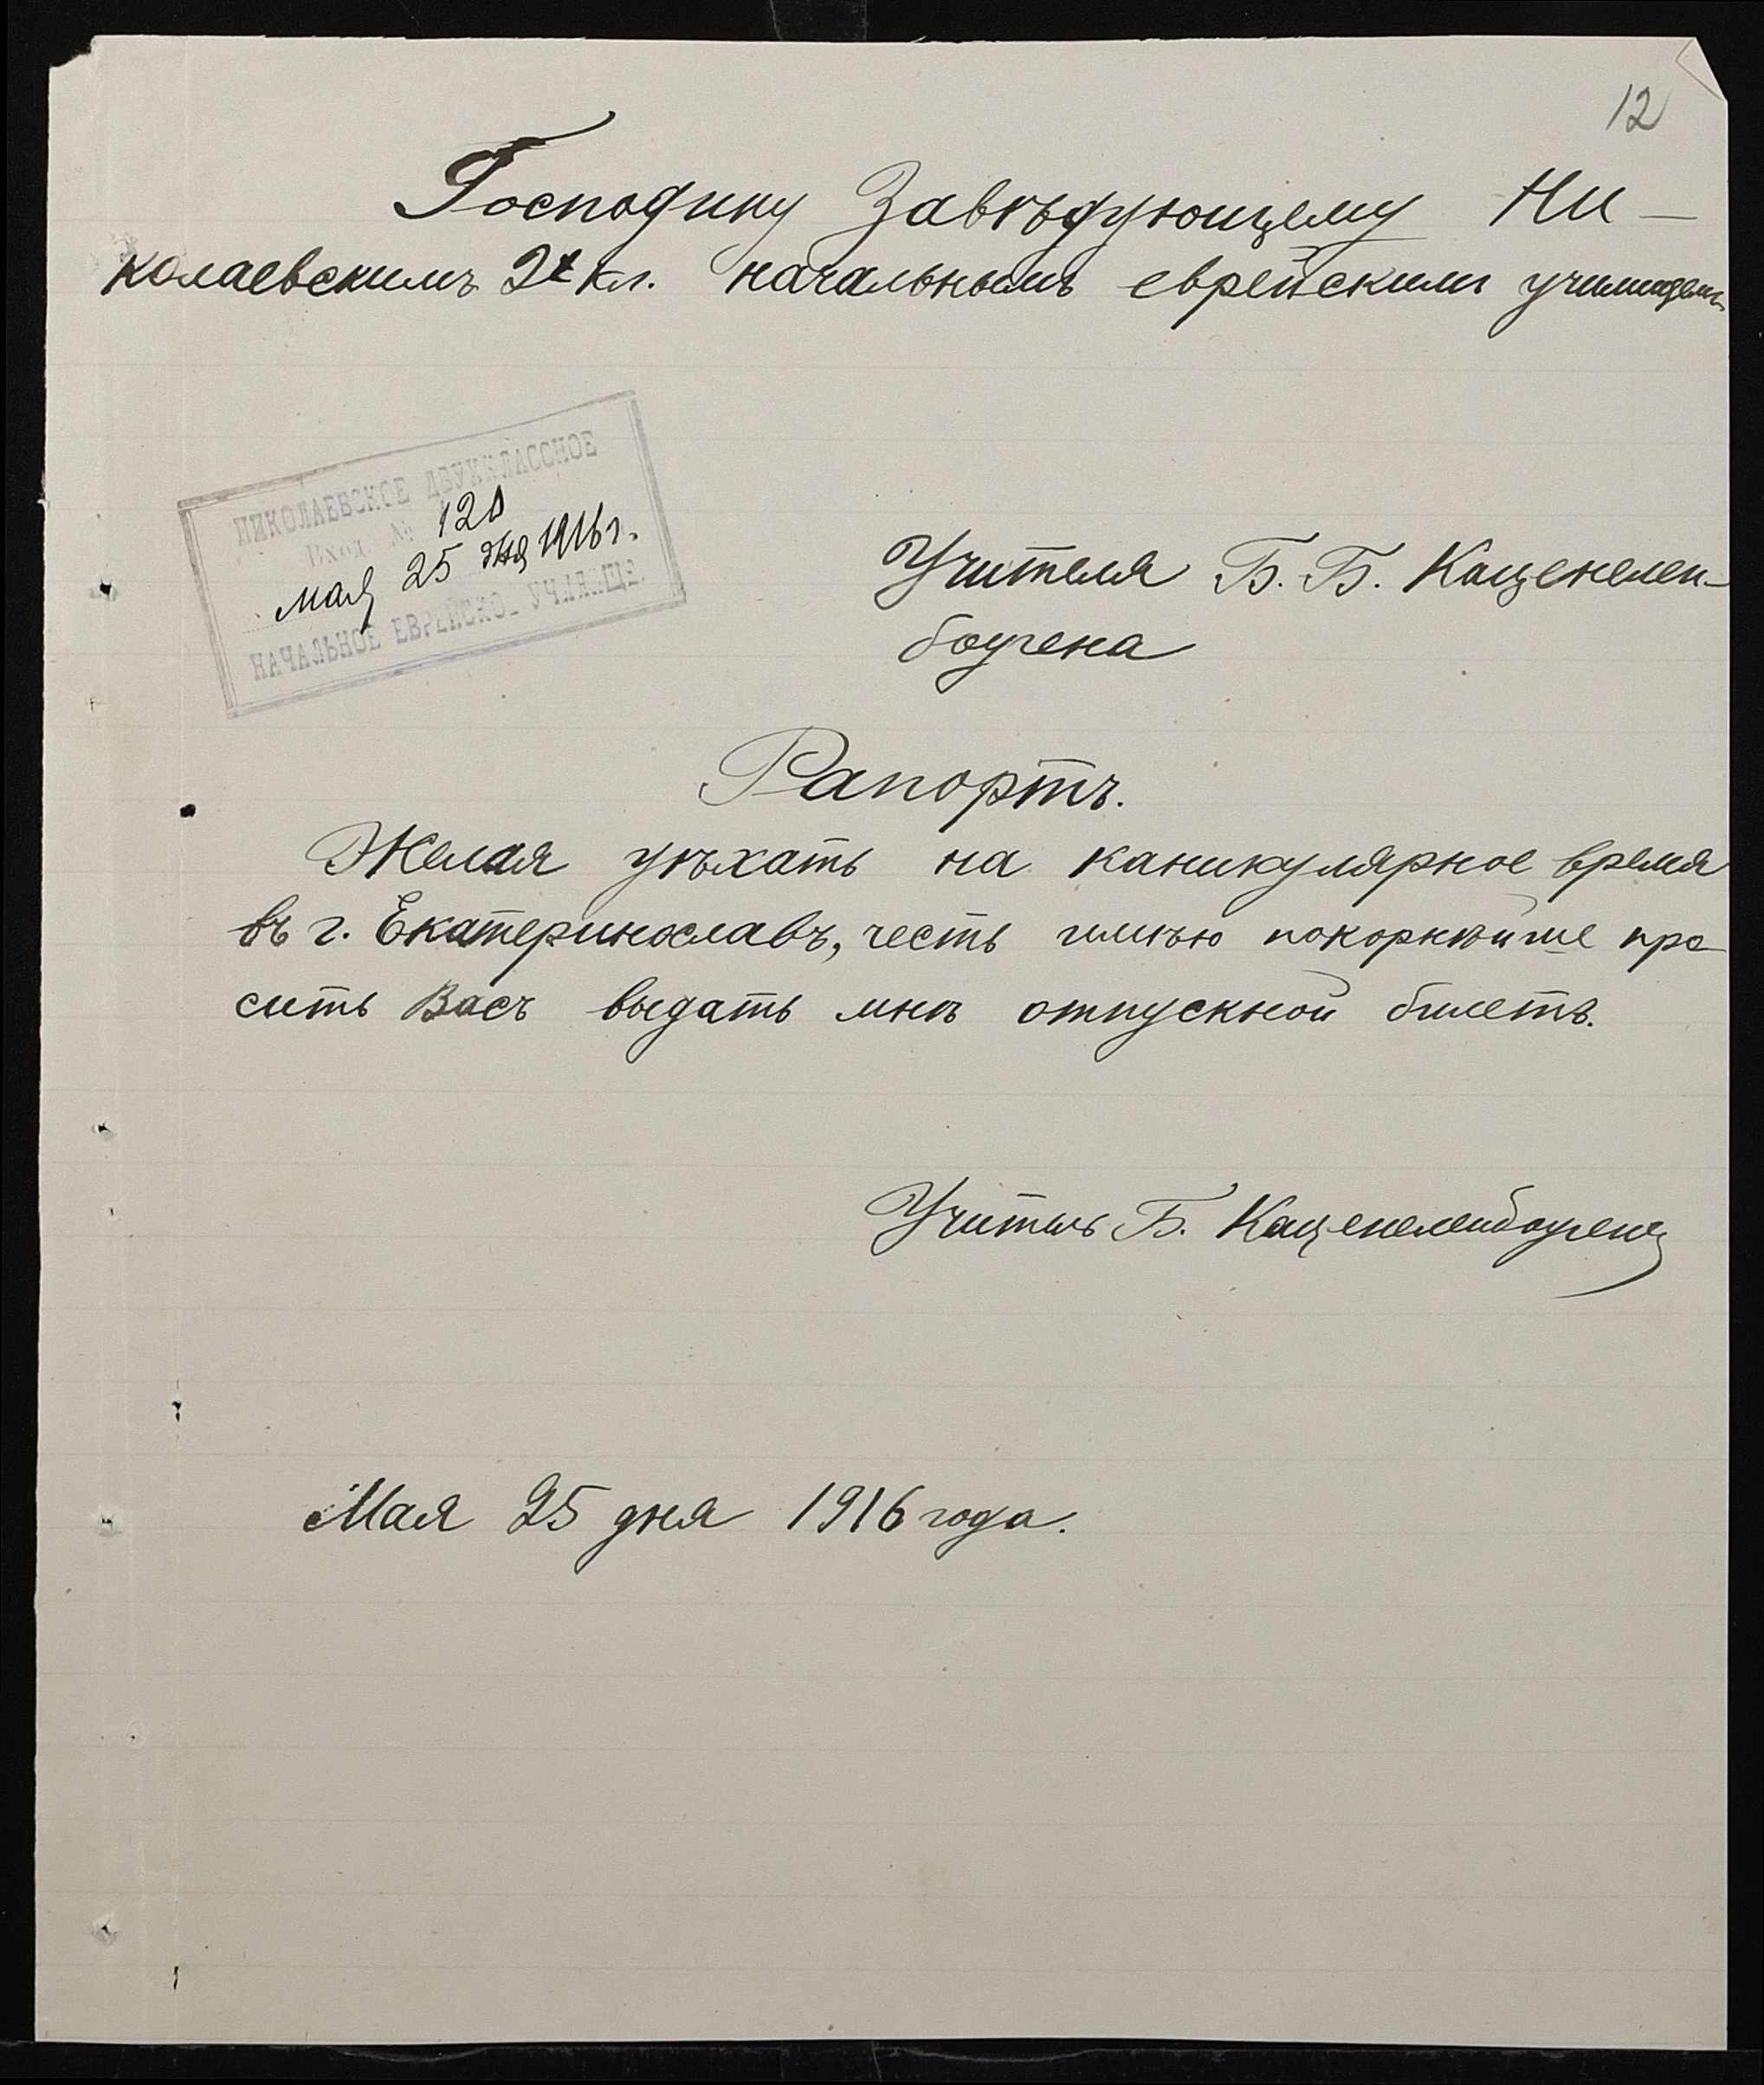 12
Господину Завѣдующему Ни-
колаевскимъ 2х кл. начальнымъ еврейскимъ училищемъ
НИКОЛАЕВСКОЕ ДВУХКЛАССНОЕ
Вход. №
мая 25 дня 1916 г.
НАЧАЛЬНОЕ ЕВРЕЙСКОЕ УЧИЛИЩЕ.
Учителя Б. Б. Каценелен-
богена
Рапортъ.
Желая уѣхать на каникулярное время
въ г. Екатеринославъ, честь имѣю покорнѣйше про-
сить Васъ выдать мнѣ отпускной билетъ.
Учитель Б. Каценеленбогенъ
Мая 25 дня 1916 года.